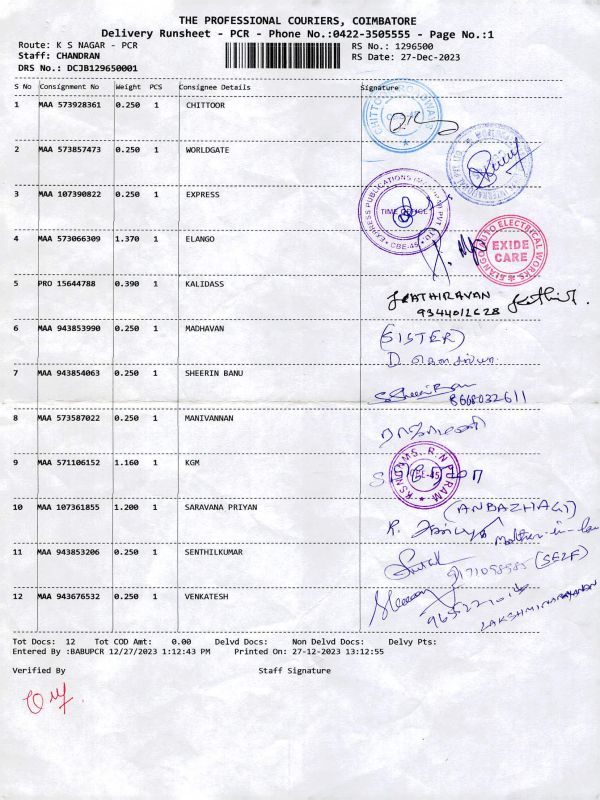 THE PROFESSIONAL COURIERS, COIMBATORE
Delivery Runsheet - PCR - Phone No.:0422-3505555 - Page No.:1
Route: K S NAGAR - PCR RS No.: 1296500
Staff: CHANDRAN RS Date: 27-Dec-2023
DRS No.: DCJB129650001
S No Consignment No Weight PCS Consignee Details Signature
1 MAA 573928361 0.250 1 CHITTOOR
2 MAA 573857473 0.250 1 WORLDGATE
3 MAA 107390822 0.250 1 EXPRESS
EXPRESS PUBLICATIONS
TIME OFFICE
CBE-45
4 MAA 573066309 1.370 1 ELANGO
ELANGO AUTO ELECTRICAL WORKS
EXIDE
CARE
5 PRO 15644788 0.390 1 KALIDASS
KATHIRAVAN
9344012628
6 MAA 943853990 0.250 1 MADHAVAN
(SISTER)
7 MAA 943854063 0.250 1 SHEERIN BANU
8668032611
8 MAA 573587022 0.250 1 MANIVANNAN
9 MAA 571106152 1.160 1 KGM
10 MAA 107361855 1.200 1 SARAVANA PRIYAN
(ANBAZHAGI)
Mother-in-law
11 MAA 943853206 0.250 1 SENTHILKUMAR
(SELF)
12 MAA 943676532 0.250 1 VENKATESH
LAKSHMINARAYANAN
Tot Docs: 12 Tot COD Amt: 0.00 Delvd Docs: Non Delvd Docs: Delvy Pts:
Entered By :BABUPCR 12/27/2023 1:12:43 PM Printed On: 27-12-2023 13:12:55
Verified By Staff Signature